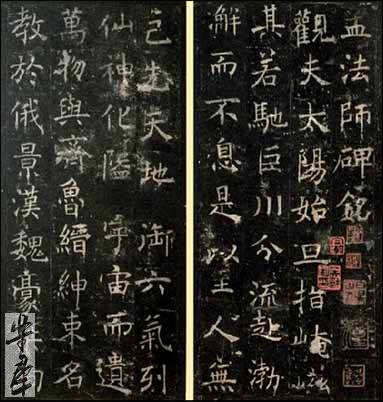 孟法師碑銘
觀夫太陽始旦指崦嵫
其若馳巨川分流赴渤
澥而不息是以至人無
己先天地御六氣列
仙神化隘宇宙而遺
萬物與齊魯縉紳束名
教於俄景漢魏豪